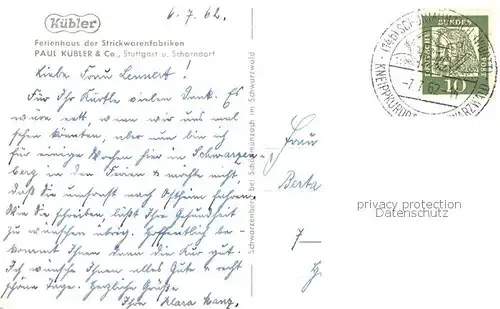 6.7.62.
Kübler
Ferienhaus der Strickwarenfabriken
PAUL KÜBLER & Co., Stuttgart u. Schorndorf
Liebe Frau Lennert!
Für Ihr Kärtle vielen Dank. Es
wäre nett, wenn wir uns mal
sehen könnten, aber nun bin ich
für einige Wochen hier in Schwarzen-
berg in den Ferien & möchte nicht
daß Sie umsonst nach Ostheim fahren.
Wie Sie schreiben, läßt Ihre Gesundheit
zu wünschen übrig. Hoffentlich be-
kommt Ihnen dann die Kur gut.
Ich wünsche Ihnen alles Gute & recht
schöne Tage. Herzliche Grüße
Ihre Klara
Schwarzenberg bei Schönmünzach im Schwarzwald
Frau
Berta
7
DEUTSCHE BUNDESPOST
10
(14b)
-7.7.62
KNEIPPKURORT
privacy protection
Datenschutz